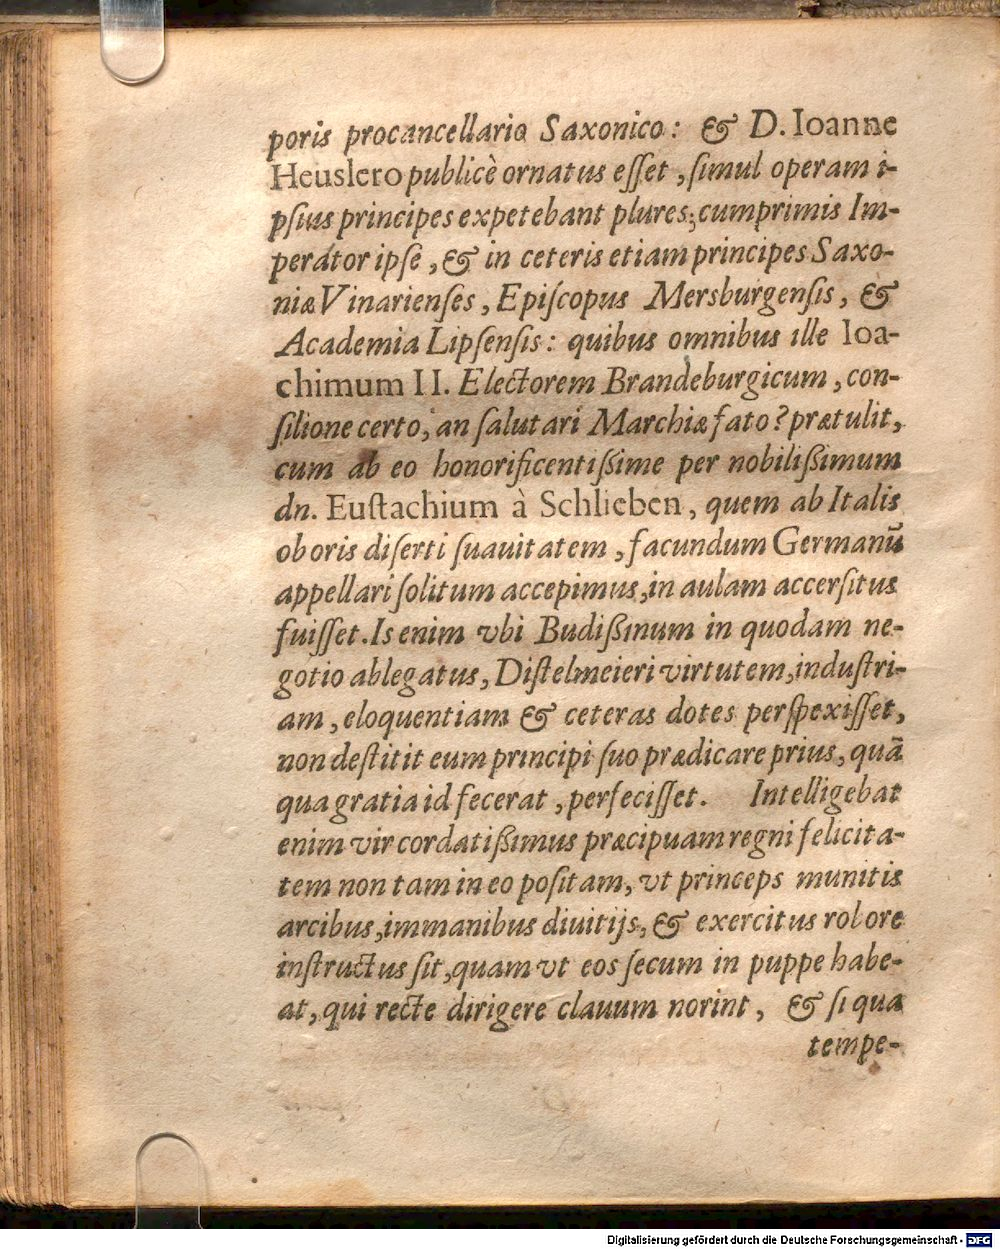 poris procancellario Saxonico: & D. Ioanne
Heuslero publicè ornatus eſſet, ſimul operam i-
pſius principes expetebant plures; cumprimis Im-
perator ipſe, & in ceteris etiam principes Saxo-
niæ Vinarienſes, Epiſcopus Mersburgenſis, &
Academia Lipſenſis: quibus omnibus ille Ioa-
chimum II. Electorem Brandeburgicum, con-
ſilione certo, an ſalutari Marchiæ fato? prætulit,
cum ab eo honorificentißime per nobilißimum
dn. Euſtachium à Schlieben, quem ab Italis
ob oris diſerti ſuauitatem, facundum Germanũ
appellari ſolitum accepimus, in aulam accerſitus
fuiſſet. Is enim vbi Budißinum in quodam ne-
gotio ablegatus, Diſtelmeieri virtutem, induſtri-
am, eloquentiam & ceteras dotes perſpexiſſet,
non deſtitit eum principi ſuo prædicare prius, quã
qua gratia id fecerat, perfeciſſet. Intelligebat
enim vir cordatißimus præcipuam regni felicita-
tem non tam in eo poſitam, vt princeps munitis
arcibus, immanibus diuitijs, & exercitus robore
inſtructus ſit, quam vt eos ſecum in puppe habe-
at, qui recte dirigere clauum norint, & ſi qua
tempe-
Digitalisierung gefördert durch die Deutsche Forschungsgemeinschaft - DFG